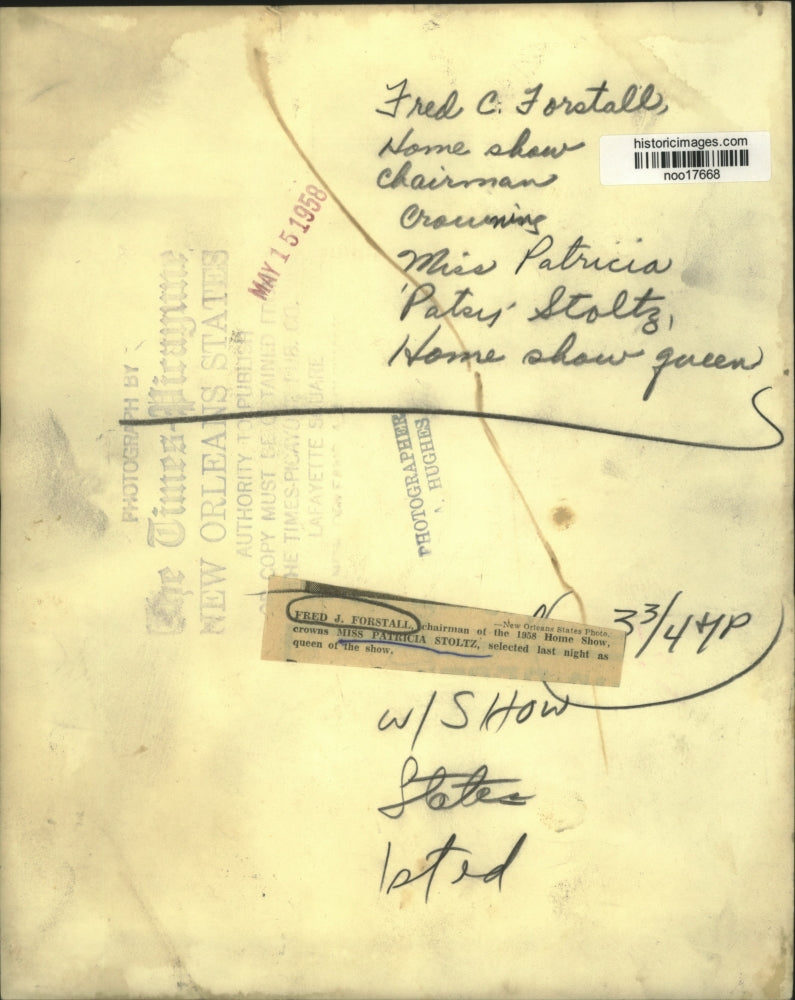 Fred C. Forstall,
Home show
chairman
crowning
Miss Patricia
'Patsy' Stoltz,
Home show queen
historicimages.com
noo17668
MAY 15 1958
PHOTOGRAPH BY
The Times-Picayune
NEW ORLEANS STATES
AUTHORITY TO PUBLISH
COPY MUST BE OBTAINED
THE TIMES-PICAYUNE PUB. CO.
LAFAYETTE SQUARE
PHOTOGRAPHER
A. HUGHES
—New Orleans States Photo.
FRED J. FORSTALL, chairman of the 1958 Home Show,
crowns MISS PATRICIA STOLTZ, selected last night as
queen of the show.
3 3/4
w/SHOW
States
1st ed